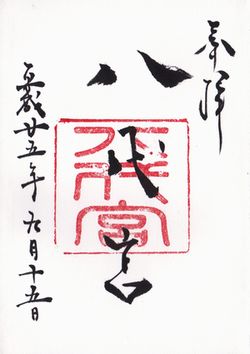 奉拝
八代宮
八代宮
平成廿五年九月十五日